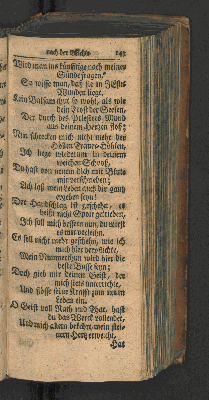 nach der Beichte. 143
Wird man ins künfftige nach meinen
Sünden fragen/
So wisse man, daß sie in JEsus
Wunden liegt.
Kein Balsam thut so wohl, als mir
dein Trost der Seelen,
Der durch des Priesters Mund
aus deinem Hertzen floß;
Nun schrecken mich nicht mehr des
Höllen Hölen,
Ich liege wiederum in deinem
weichen Schooß,
Du hast von neuem dich mit Bluts
mir verschrieben;
Ach laß mein Leben auch dir gantz
ergeben seyn!
Der Handschlag ist geschehn, es
heißt nicht Spott getrieben,
Ich soll mich bessern nun, du wirst
es mir verleihn.
Es soll nicht mehr geschehn, wie ich
mich hier
Mein Nimmerthun wird hier die
beste Busse seyn;
Doch gieb mir deinen Geist, der
mich stets unterrichte,
Und flösse seine Krafft zum neuen
Leben ein.
O Geist voll Rath und That, hast
du das Werck vollendet,
Und mich bekehrt, mein stei-
nern Hertz erweicht,
Hat